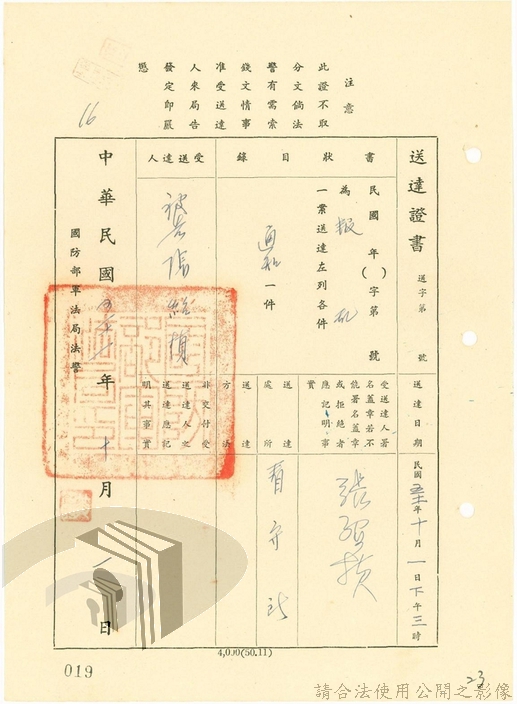 注意
此證不取
分文倘法
警有需索
錢文情事
准受送達
人來局告
發定即嚴
懲
16
送達證書
送字第 號
民國 年( )字第 號
為叛亂
一案送達左列各件
書狀目錄
通知一件
受送達人
被告張
送達日期
民國五十年十月一日下午三時
受送達人署
名蓋章若不
能署名蓋章
或拒絕者
應記明事
實
張
送達處所
看守所
送達方法
非交付受
送達人之
送達應記
明其事實
中華民國 年十月一日
國防部軍法局法警
4,000(50.11)
019
23
請合法使用公開之影像